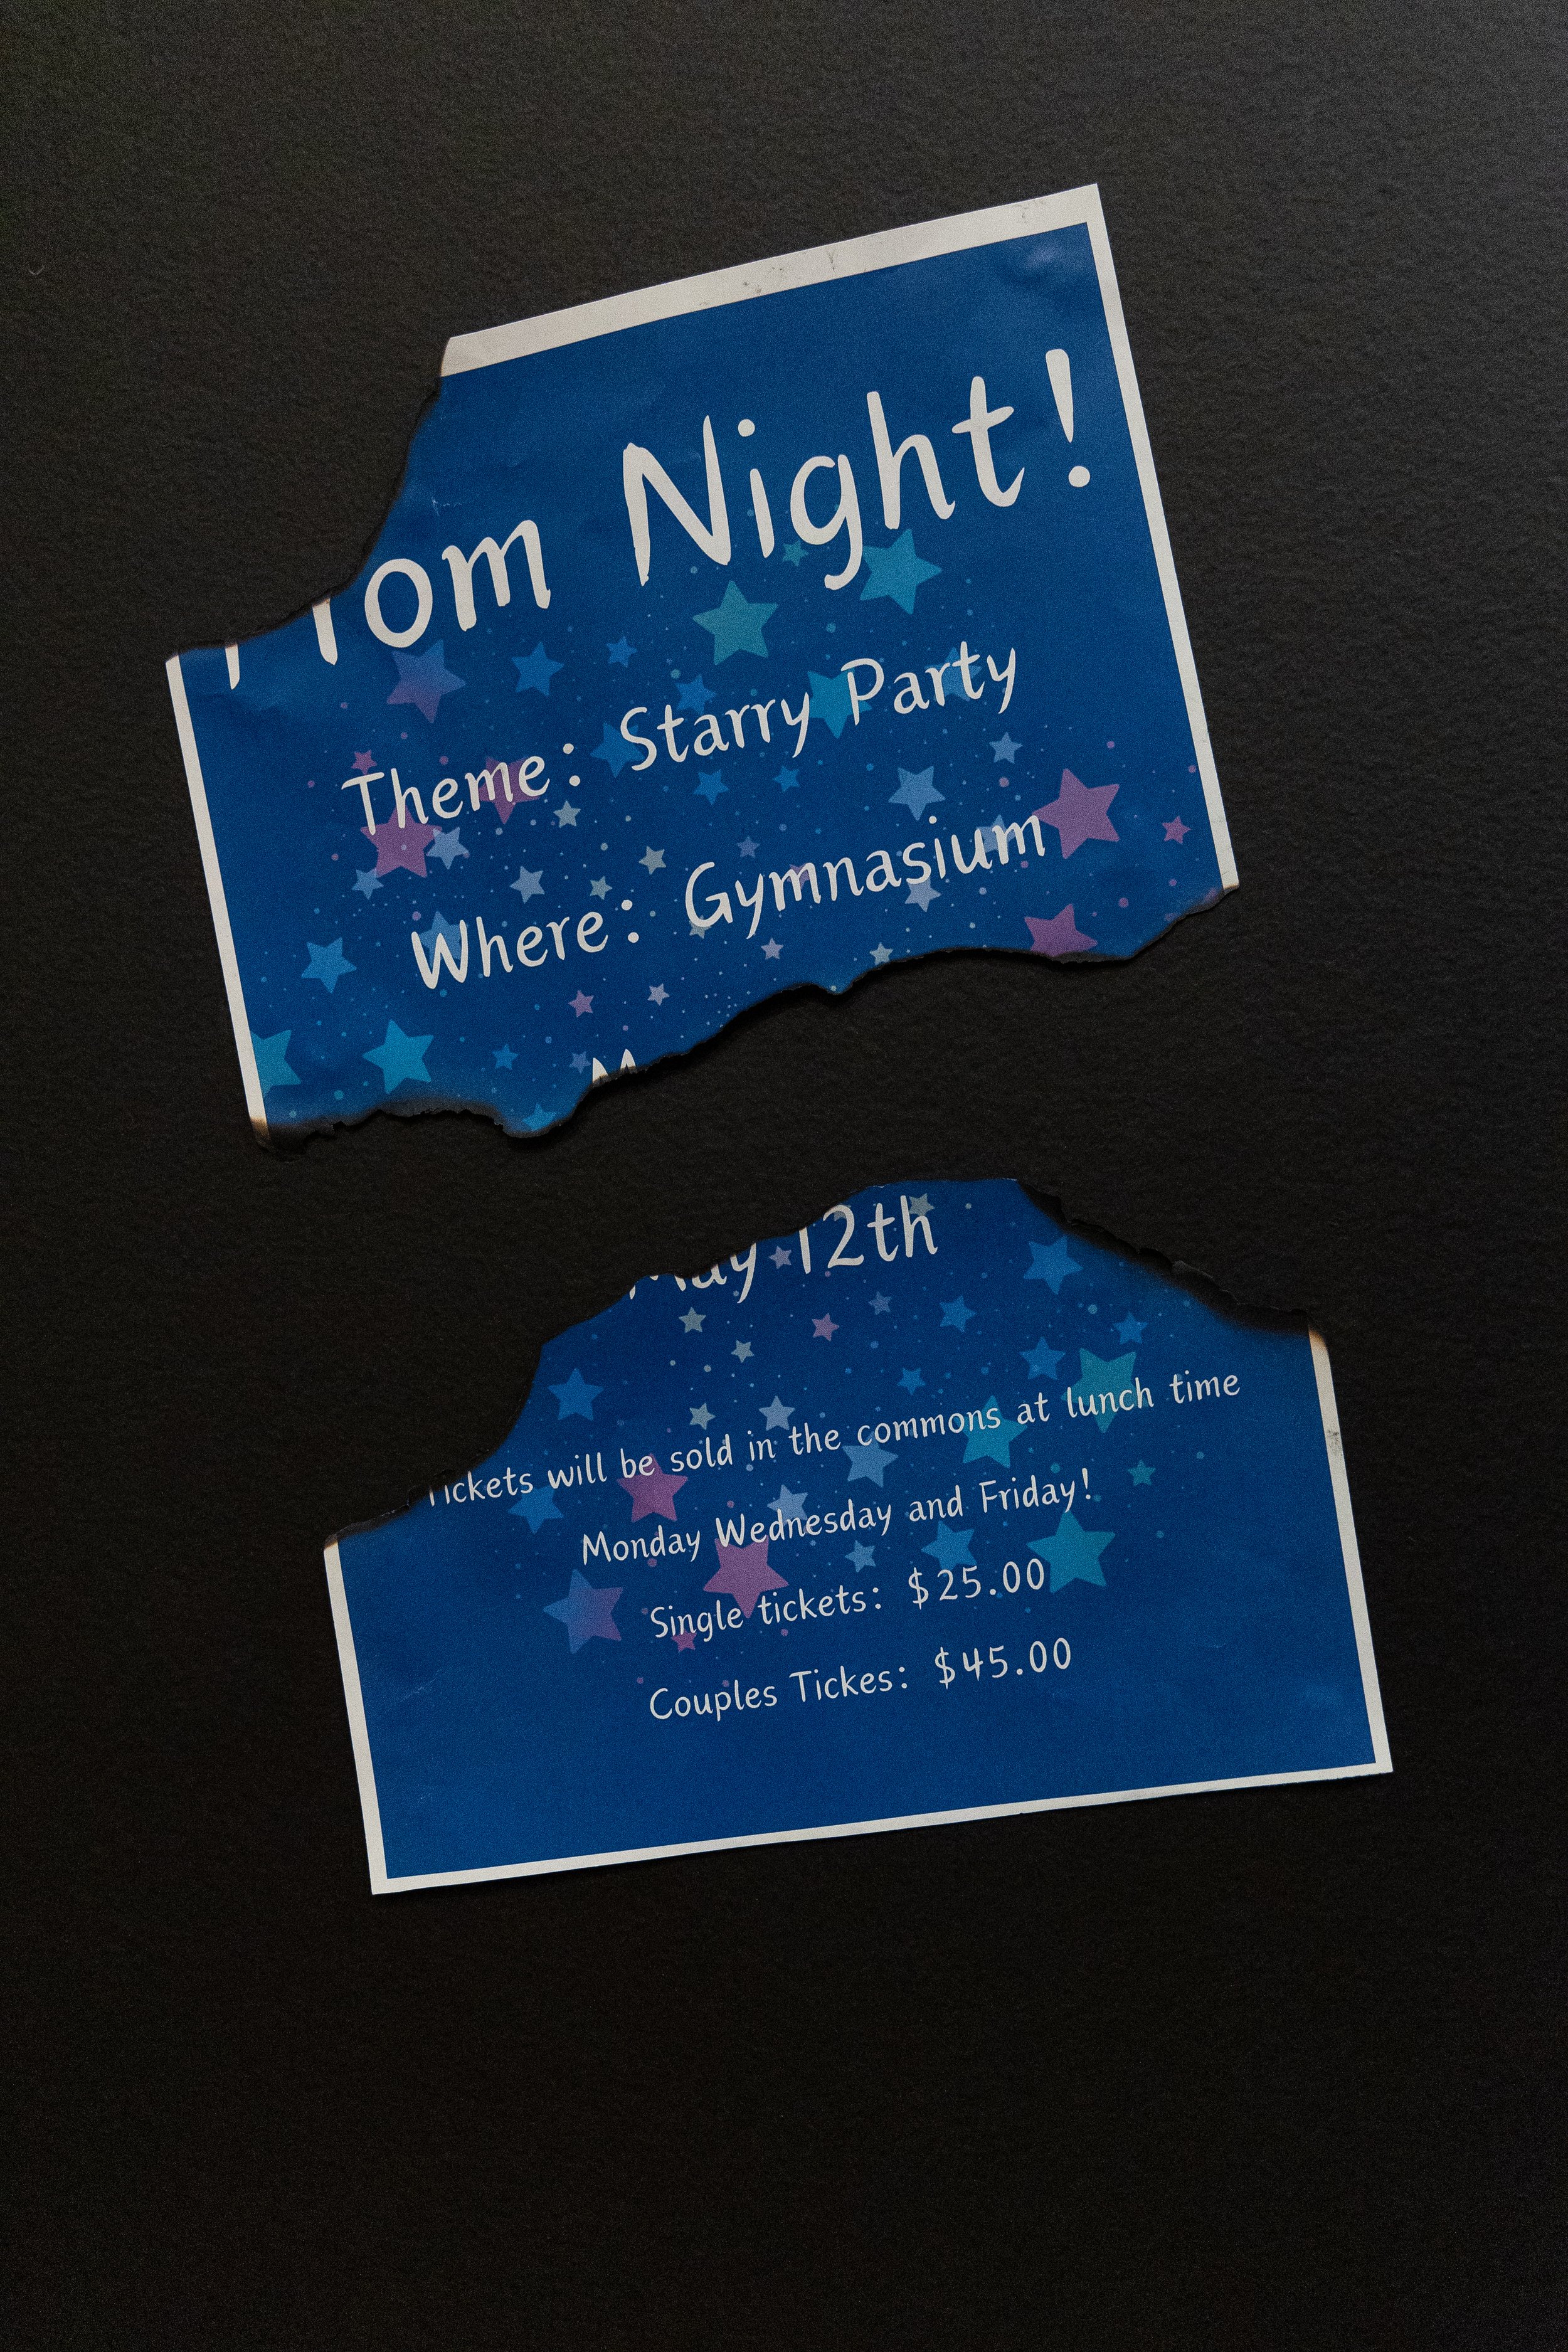 Prom Night!
Theme: Starry Party
Where: Gymnasium
May 12th
Tickets will be sold in the commons at lunch time
Monday Wednesday and Friday!
Single tickets: $25.00
Couples Tickes: $45.00